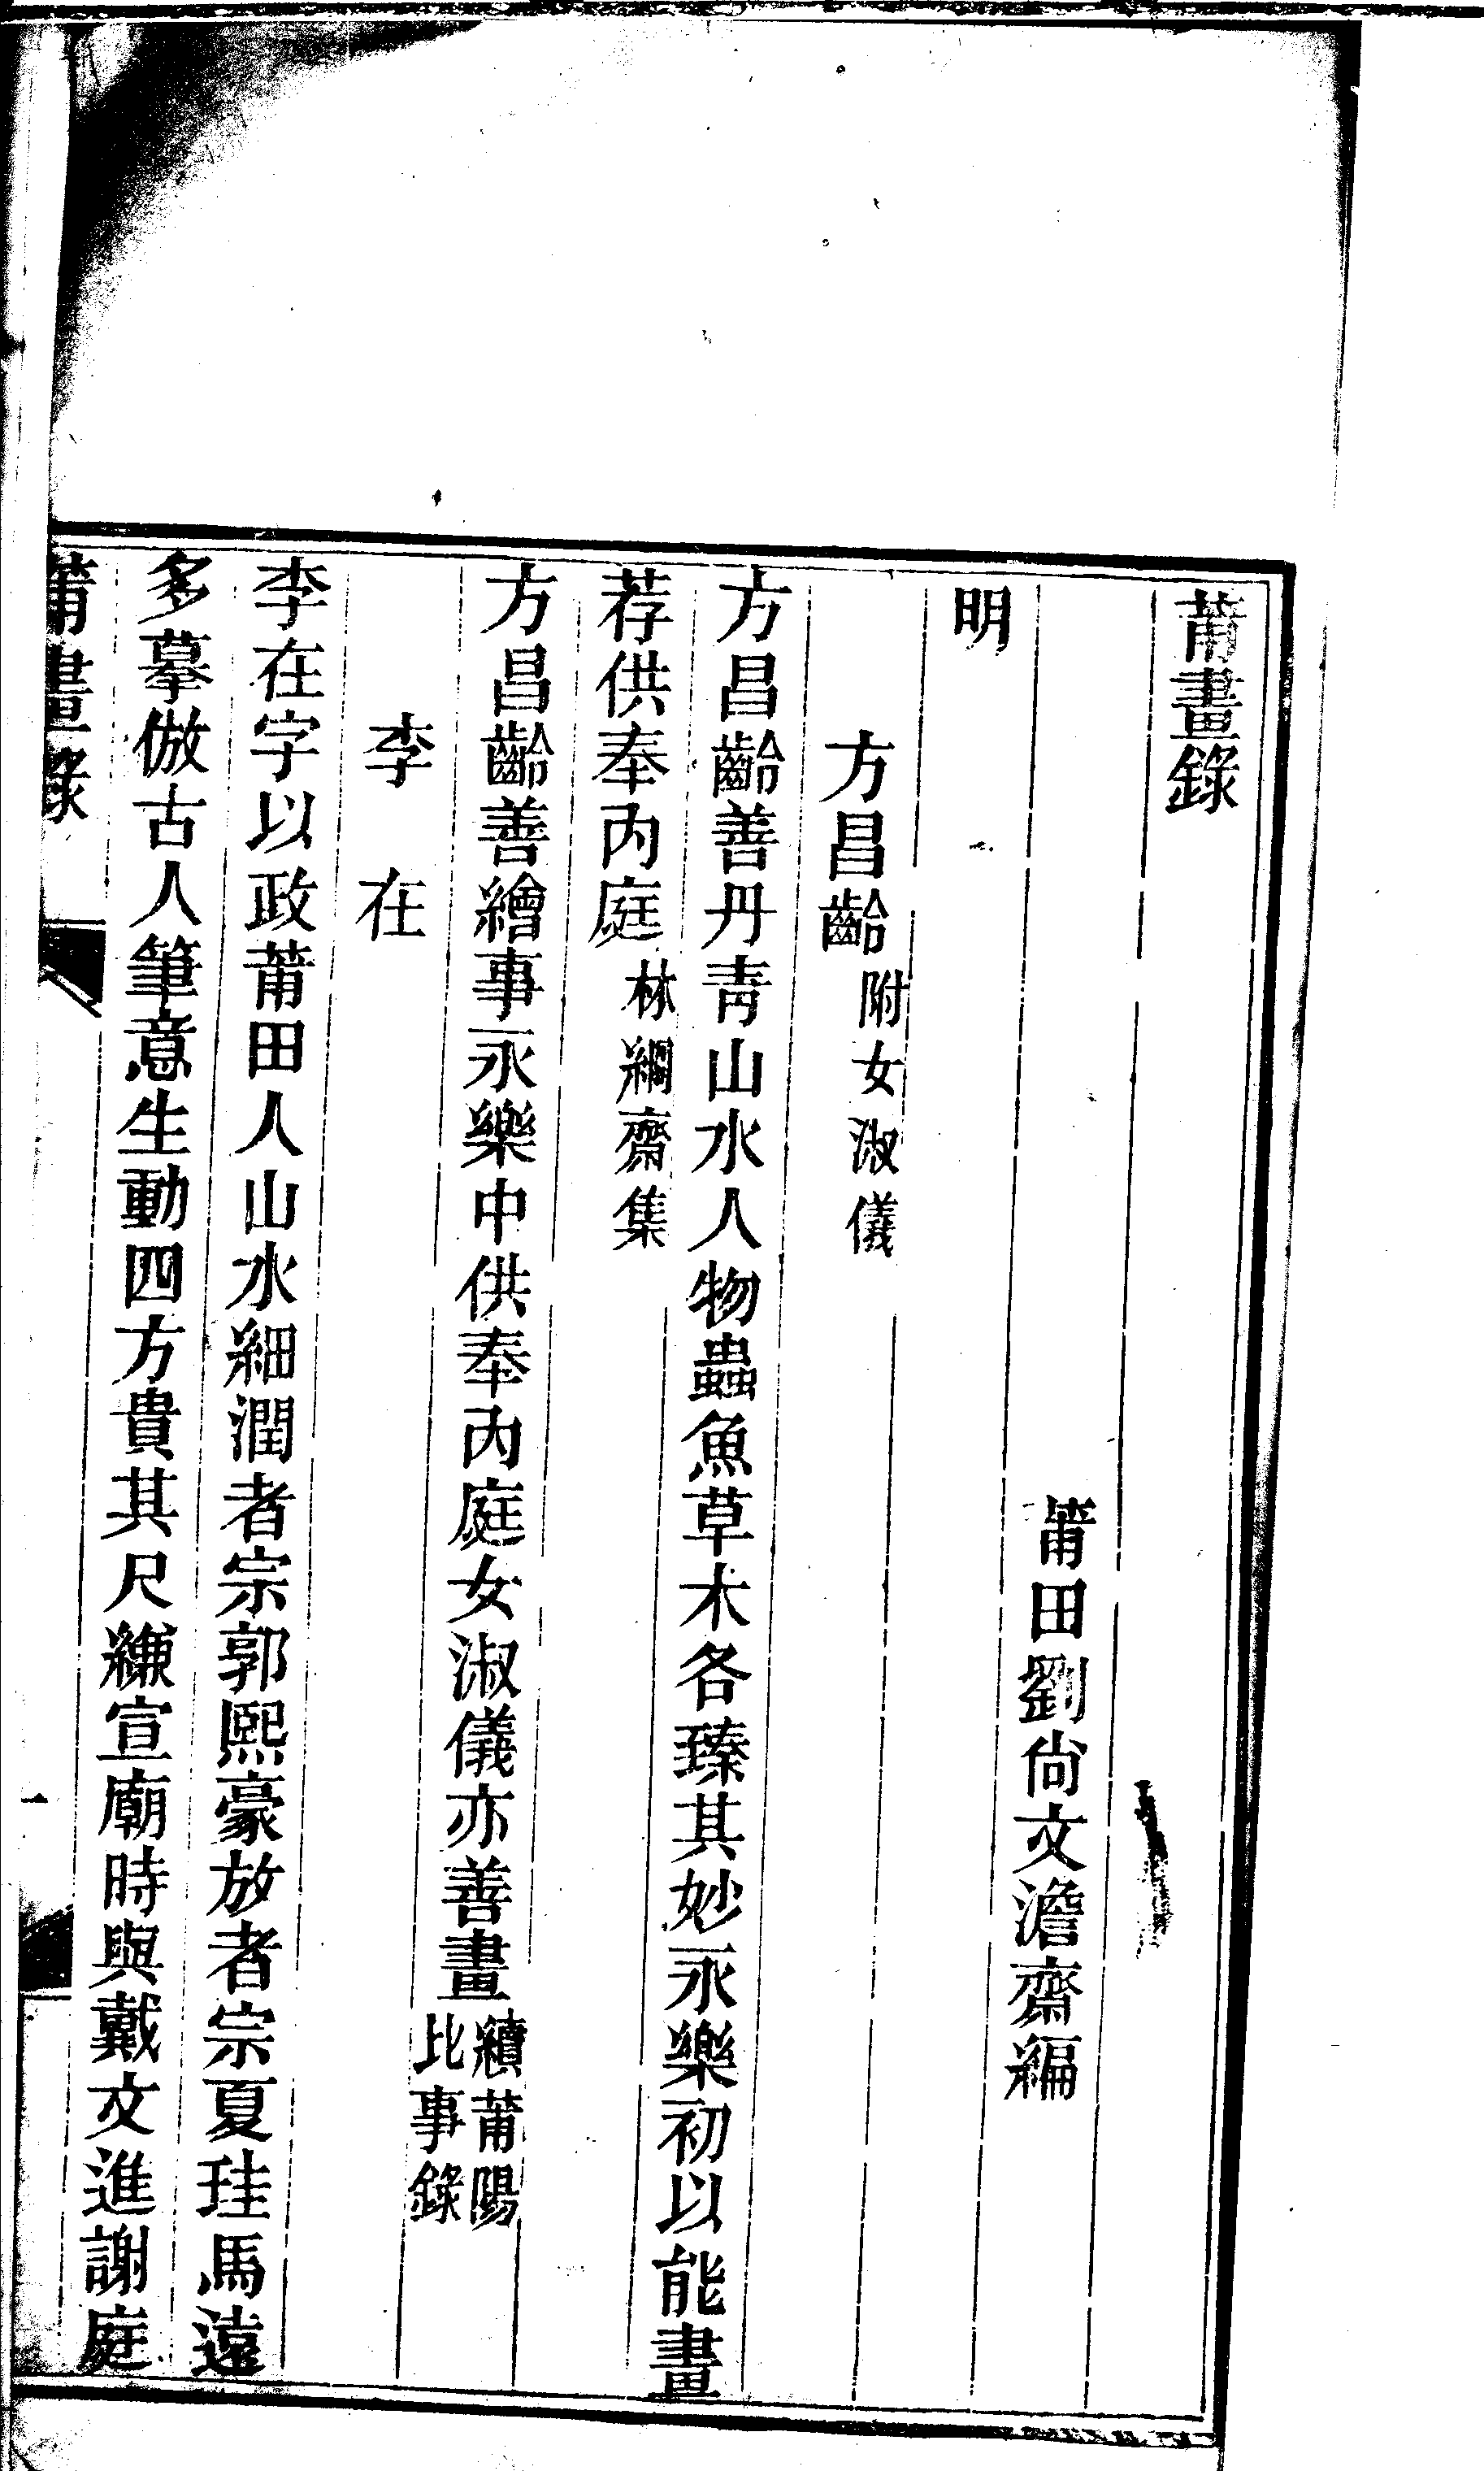 莆畫錄
莆田劉尙文澹齋編
明
方昌齡附女淑儀
方昌齡善丹青山水人物蟲魚草木各臻其妙永樂初以能畫
荐供奉內庭林絅齋集
方昌齡善繪事永樂中供奉內庭女淑儀亦善畫續莆陽
比事錄
李在
李在字以政莆田人山水細潤者宗郭熙豪放者宗夏珪馬遠
多摹倣古人筆意生動四方貴其尺縑宣廟時與戴文進謝庭
莆畫錄
一